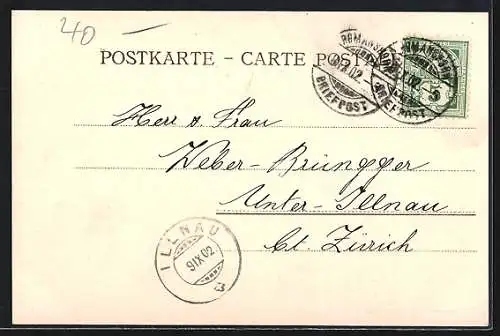 40
POSTKARTE - CARTE POSTALE
ROMANSHORN
IX.02
BRIEFPOST
ROMANSHORN
BRIEFPOST
5
Herr & Frau
Weber-Brüngger
Unter-Illnau
Ct. Zürich
ILLNAU
9 IX 02